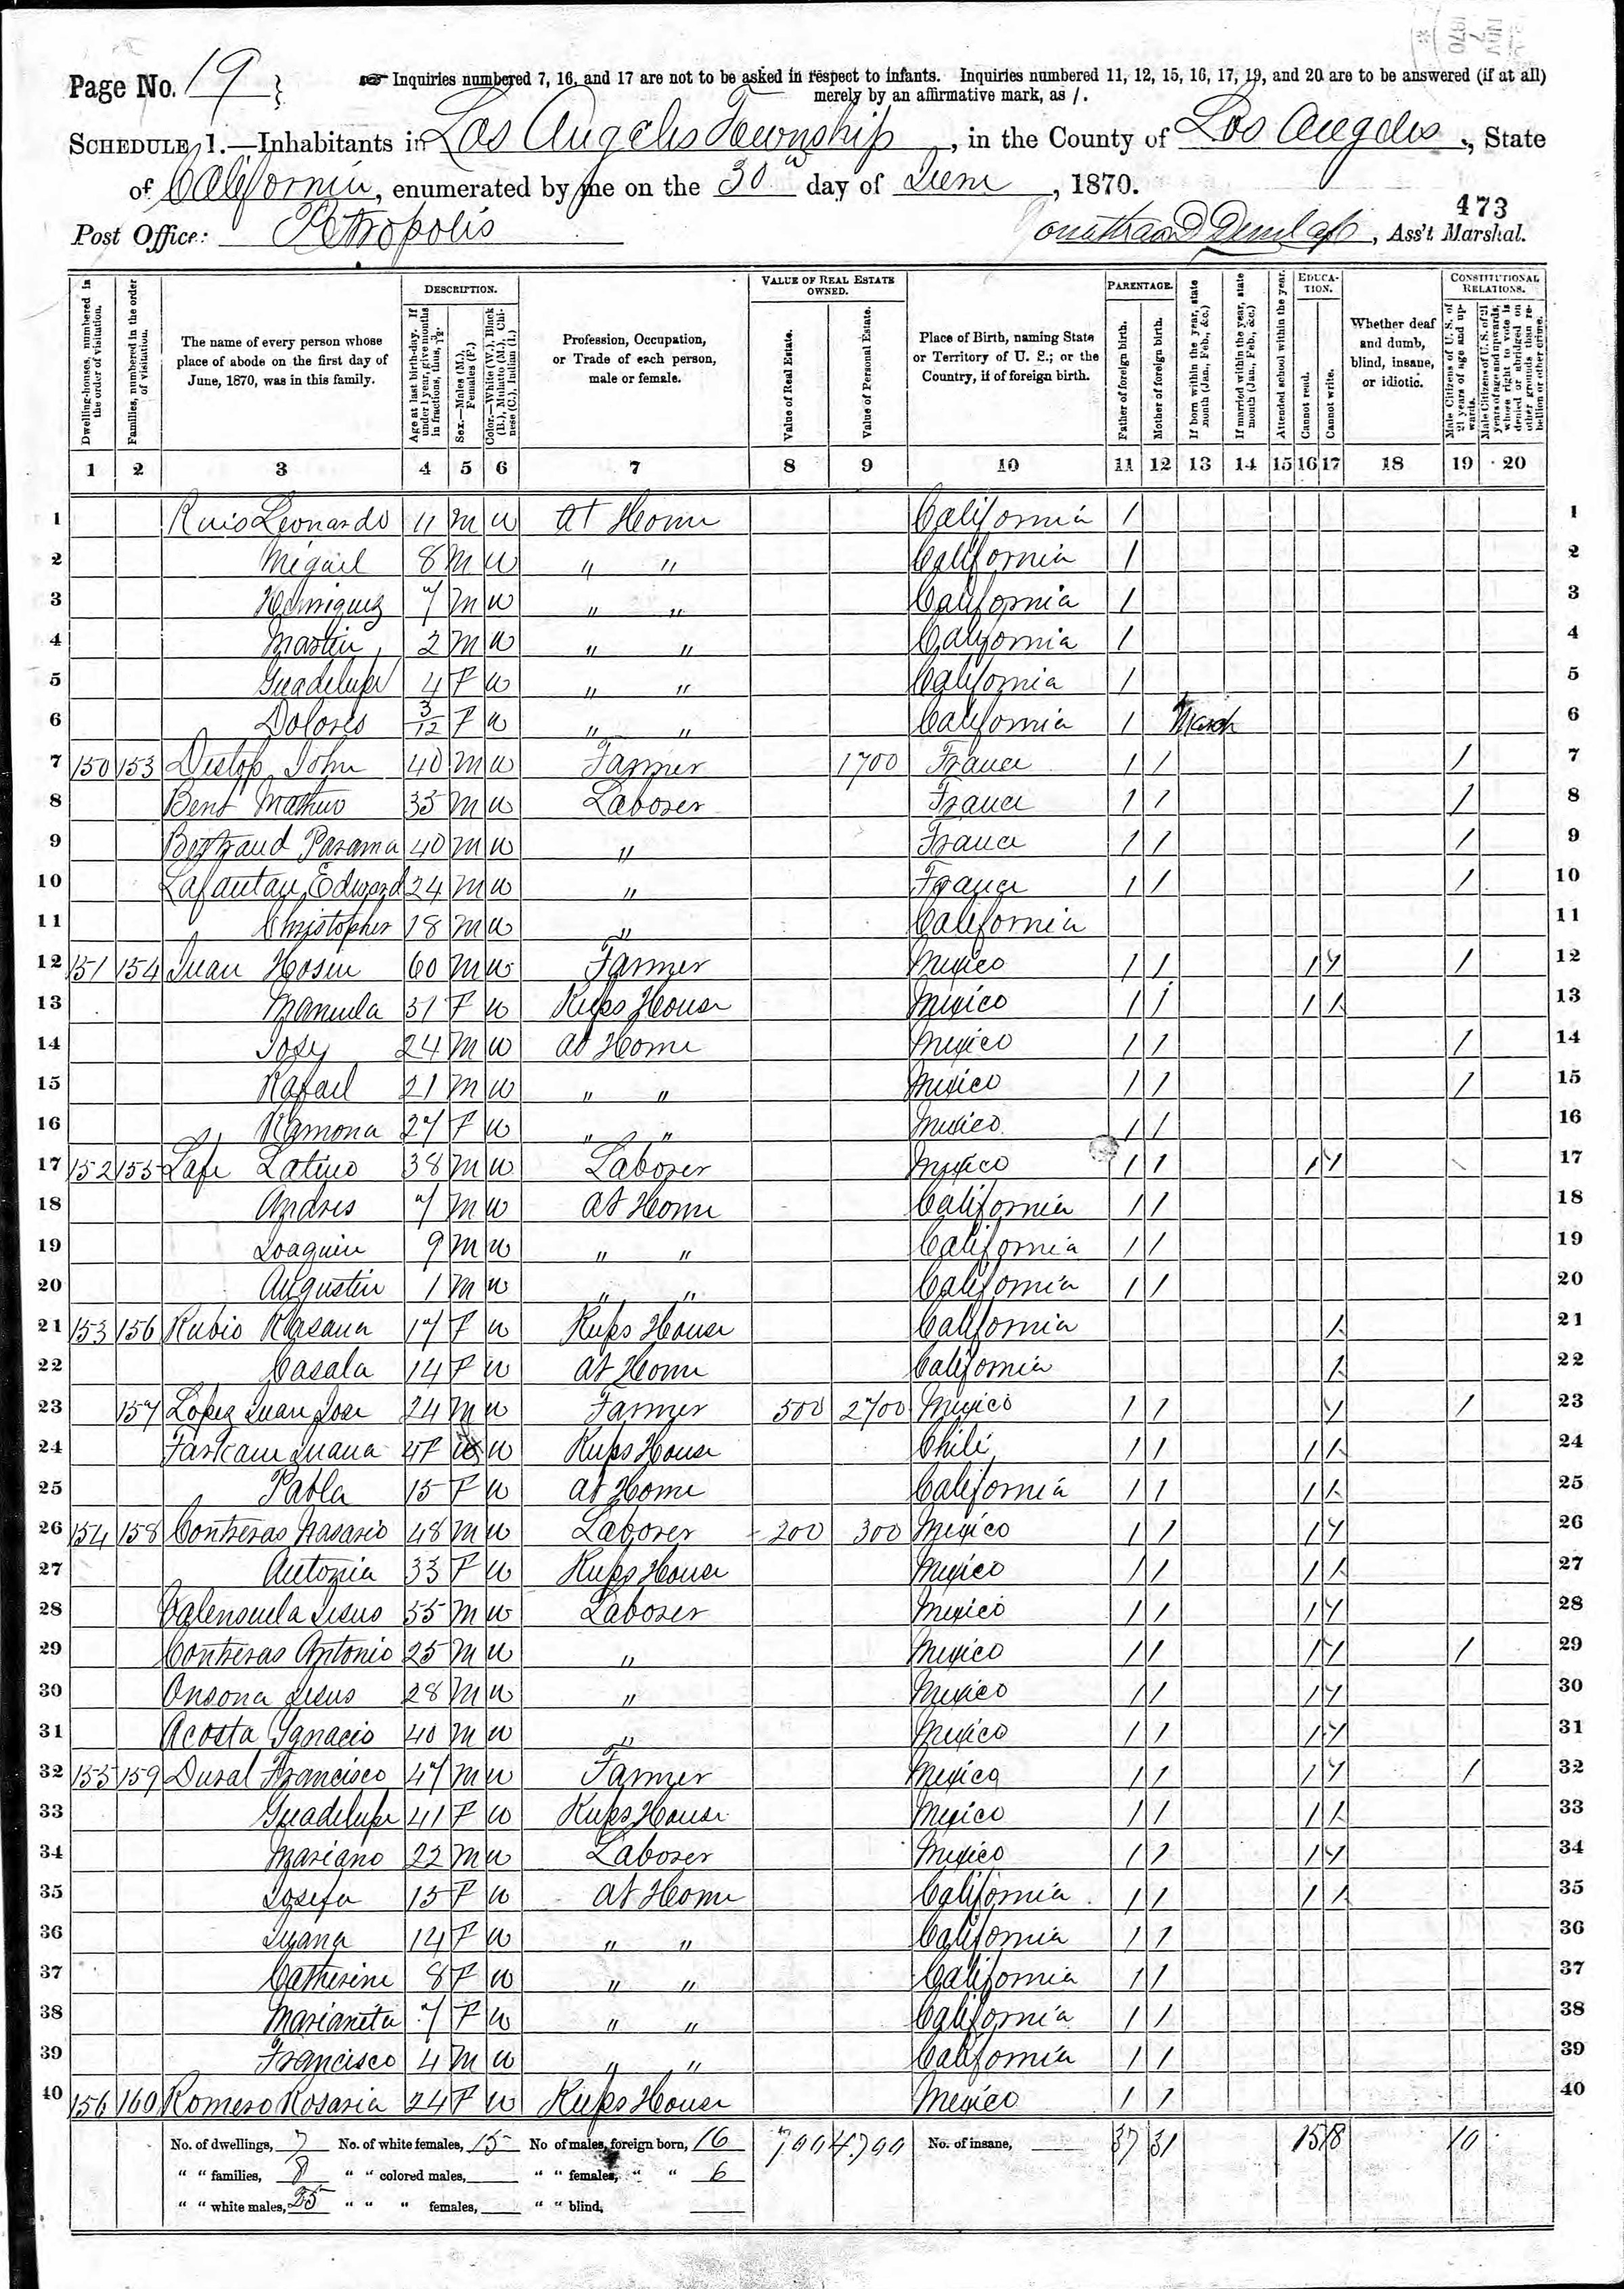 Page No. 19
Inquiries numbered 7, 16, and 17 are not to be asked in respect to infants. Inquiries numbered 11, 12, 15, 16, 17, 19, and 20 are to be answered (if at all)
merely by an affirmative mark, as /.
SCHEDULE 1.—Inhabitants in Los Angeles Township, in the County of Los Angeles, State
of California, enumerated by me on the 30 day of June, 1870.
473
Post Office: Petropolis Dunlap, Ass't Marshal.
Dwelling-houses, numbered in the order of visitation.
Families, numbered in the order of visitation.
The name of every person whose place of abode on the first day of June, 1870, was in this family.
DESCRIPTION.
Age at last birth-day. If under 1 year, give months in fractions, thus, 3/12.
Sex.—Males (M.), Females (F.)
Color.—White (W.), Black (B.), Mulatto (M.), Chinese (C.), Indian (I.)
Profession, Occupation, or Trade of each person, male or female.
VALUE OF REAL ESTATE OWNED.
Value of Real Estate.
Value of Personal Estate.
Place of Birth, naming State or Territory of U. S.; or the Country, if of foreign birth.
PARENTAGE.
Father of foreign birth.
Mother of foreign birth.
If born within the year, state month (Jan., Feb., &c.)
If married within the year, state month (Jan., Feb., &c.)
Attended school within the year.
EDUCATION.
Cannot read.
Cannot write.
Whether deaf and dumb, blind, insane, or idiotic.
CONSTITUTIONAL RELATIONS.
Male Citizens of U. S. of 21 years of age and upwards.
Male Citizens of U. S. of 21 years of age and upwards, whose right to vote is denied or abridged on other grounds than rebellion or other crime.
1 2 3 4 5 6 7 8 9 10 11 12 13 14 15 16 17 18 19 20
1 Ruis Leonardo 11 M W At Home California / 1
2 Miguil 8 M W " " California / 2
3 7 M W " " California / 3
4 Martin 2 M W " " California / 4
5 Guadelupe 4 F W " " California / 5
6 Dolores 3/12 F W " " California / March 6
7 150 153 John 40 M W Farmer 1700 France / / / 7
8 35 M W Laborer France / / / 8
9 Bertraud 40 M W " France / / / 9
10 Edward 24 M W " France / / / 10
11 Christopher 18 M W " California 11
12 151 154 Juan 60 M W Farmer Mexico / / / / / 12
13 Manula 31 F W Keeps House Mexico / / / / 13
14 24 M W At Home Mexico / / / 14
15 Rafael 21 M W " " Mexico / / / 15
16 Ramona 27 F W " " Mexico / / 16
17 152 155 38 M W Laborer Mexico / / / / 17
18 Andres 7 M W At Home California / / 18
19 Joaquin 9 M W " " California / / 19
20 Augustin 1 M W " " California / / 20
21 153 156 Rubio 17 F W Keeps House California / 21
22 Casala 14 F W At Home California / 22
23 157 Lopez Juan Jose 24 M W Farmer 500 2700 Mexico / / / / 23
24 Juana 47 W Keeps House Chili / / / / 24
25 Pabla 15 F W At Home California / / / / 25
26 154 158 Contreras 48 M W Laborer 200 300 Mexico / / / / 26
27 Antonia 33 F W Keeps House Mexico / / / / 27
28 Valensuela Jesus 55 M W Laborer Mexico / / / / 28
29 Contreras Antonio 25 M W " Mexico / / / / / 29
30 Ansona Jesus 28 M W " Mexico / / / / 30
31 Acosta Ignacio 40 M W " Mexico / / / / 31
32 155 159 Francisco 47 M W Farmer Mexico / / / / / 32
33 Guadelupe 41 F W Keeps House Mexico / / / / 33
34 Mariano 22 M W Laborer Mexico / / / / 34
35 Josefa 15 F W At Home California / / / / 35
36 14 F W " " California / / 36
37 Catherine 8 F W " " California / / 37
38 Marianita 7 F W " " California / / 38
39 Francisco 4 M W " " California / / 39
40 156 160 Romero Rosaria 24 F W Keeps House Mexico / / 40
No. of dwellings, 7 No. of white females, 15 No of males, foreign born, 16 700 4700 No. of insane, 37 31 15 18 10
" " families, 8 " " colored males, " " females, " " 6
" " white males, 25 " " " females, " " blind,